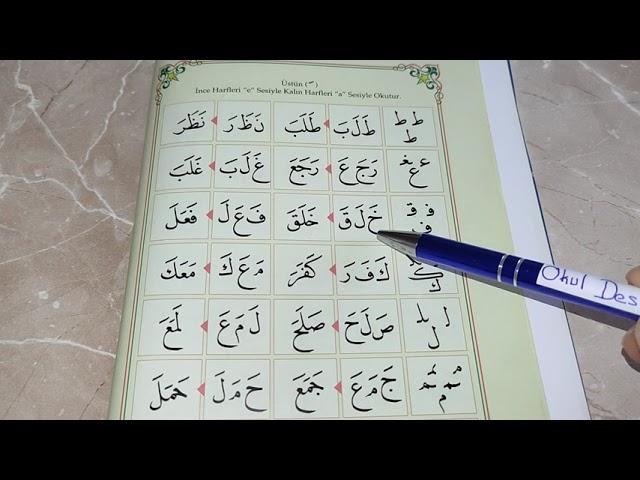 Üstün (ـَ)
İnce Harfleri "e" Sesiyle Kalın Harfleri "a" Sesiyle Okutur.
ط ط ط طَ لَ بَ طَلَبَ نَ ظَ رَ نَظَرَ
ـع ـعـ ع رَ جَ عَ رَجَعَ غَ لَ بَ غَلَبَ
خَ لَ قَ خَلَقَ فَ عَ لَ فَعَلَ
كَ فَ رَ كَفَرَ مَ عَ كَ مَعَكَ
صَ لَ حَ صَلَحَ لَ مَ عَ لَمَعَ
جَ مَ عَ جَمَعَ حَ مَ لَ حَمَلَ
Okul Des